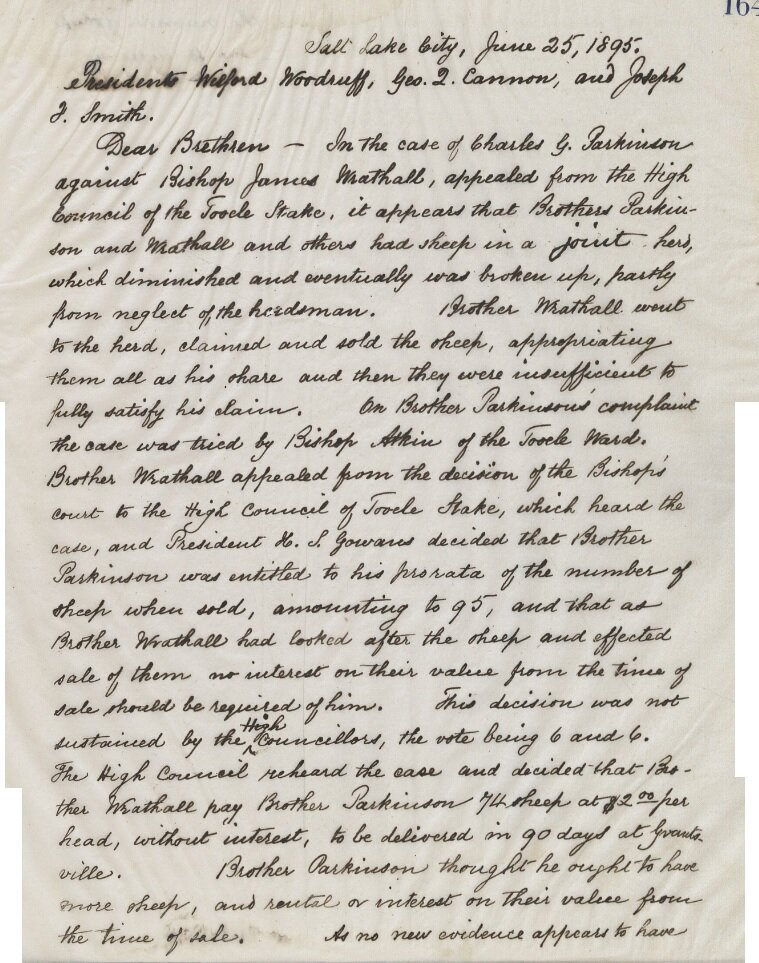 164
Salt Lake City, June 25, 1895.
Presidents Wilford Woodruff, Geo. Q. Cannon, and Joseph
F. Smith.
Dear Brethren — In the case of Charles G. Parkinson
against Bishop James Wrathall, appealed from the High
Council of the Tooele Stake, it appears that Brothers Parkin-
son and Wrathall and others had sheep in a joint herd,
which diminished and eventually was broken up, partly
from neglect of the herdsman. Brother Wrathall went
to the herd, claimed and sold the sheep, appropriating
them all as his share and then they were insufficient to
fully satisfy his claim. On Brother Parkinsons' complaint
the case was tried by Bishop Atkin of the Tooele Ward.
Brother Wrathall appealed from the decision of the Bishop's
court to the High Council of Tooele Stake, which heard the
case, and President H. S. Gowans decided that Brother
Parkinson was entitled to his prorata of the number of
sheep when sold, amounting to 95, and that as
Brother Wrathall had looked after the sheep and effected
sale of them no interest on their value from the time of
sale should be required of him. This decision was not
sustained by the High Councillors, the vote being 6 and 6.
The High Council reheard the case and decided that Bro-
ther Wrathall pay Brother Parkinson 74 sheep at $2.00 per
head, without interest, to be delivered in 90 days at Grants-
ville. Brother Parkinson thought he ought to have
more sheep, and rental or interest on their value from
the time of sale. As no new evidence appears to have